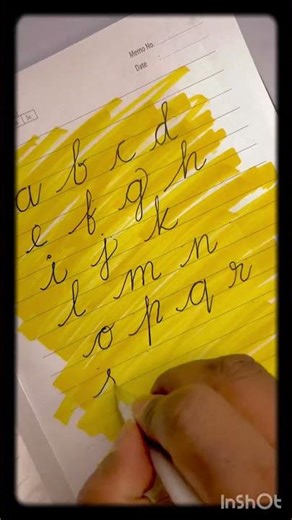 Memo No.
Date
a b c d
e f g h
i j k
l m n
o p q r
s
InShOt